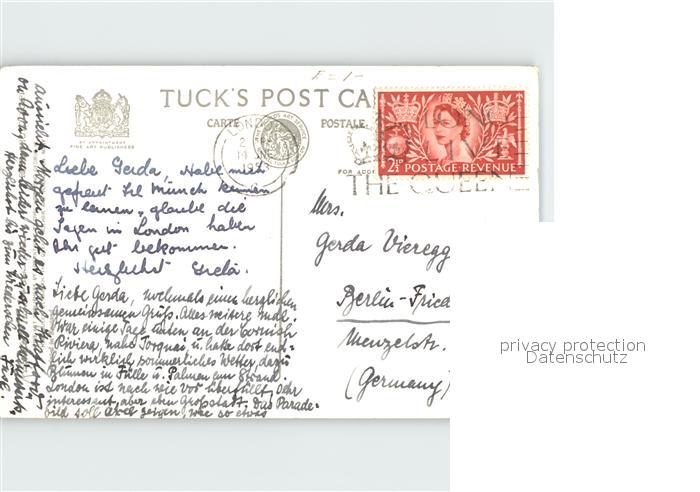 TUCK'S POST CA
CARTE
POSTALE
BY APPOINTMENT
FINE ART PUBLISHERS
LONDON
FOR
LONG
LIVE
THE QUEEN
2½D POSTAGE REVENUE
Liebe Gerda, Habe mich
gefreut Frl Münch kennen
zu lernen, glaube die
Tagen in London haben
Ihr gut bekommen.
Herzlichst
Liebe Gerda, nochmals einen herzlichen
gemeinsamen Gruß. Alles weitere mdl.
War einige Tage unten an der cornish
Riviera, nahe Torquai, u. hatte dort end-
lich wirklich sommerliches Wetter, dazu
Blumen in Fülle u. Palmen am Strand.
London ist nach wie vor überfüllt, sehr
interessant, aber eben Großstadt. Das Parade-
bild soll Dir zeigen, wie so etwas
aussieht. Morgen geht es nach
Mrs.
Gerda Vieregg
Berlin-Fried
Menzelstr.
(Germany)
privacy protection
Datenschutz